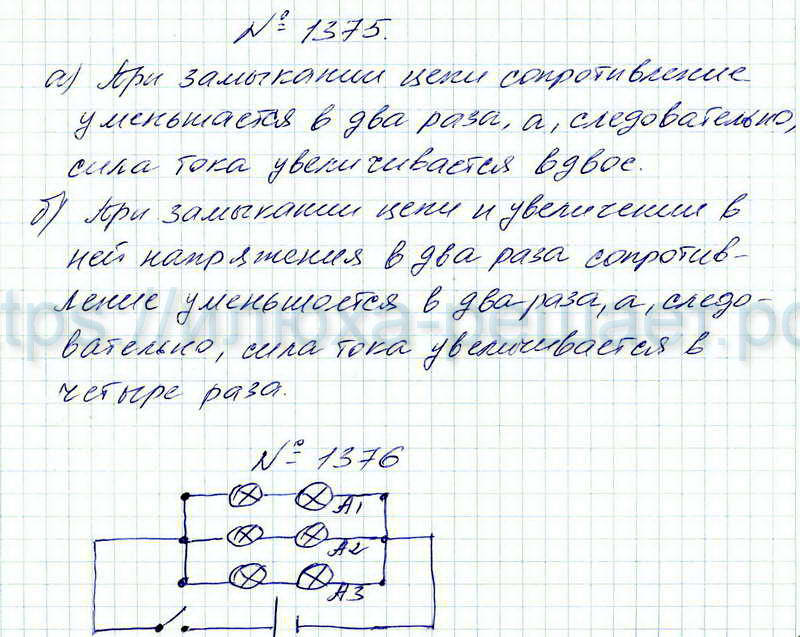 № 1375.
а) При замыкании цепи сопротивление
уменьшается в два раза, а, следовательно,
сила тока увеличивается вдвое.
б) При замыкании цепи и увеличении в
ней напряжения в два раза сопротив-
ление уменьшается в два раза, а, следо-
вательно, сила тока увеличивается в
четыре раза.
ttps://илюха-решает.рф
№ 1376
А1
А2
А3